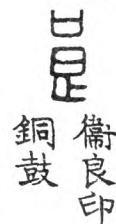 衞良印
銅鼓